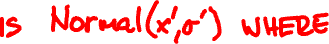 is Normal(x',σ') WHERE